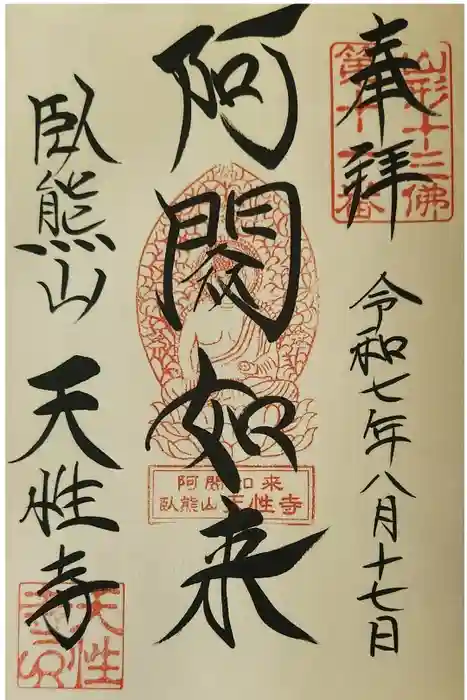 奉拝
山形十三佛
令和七年八月十七日
阿閦如来
阿閦如来
臥熊山天性寺
臥熊山
天性寺
天性